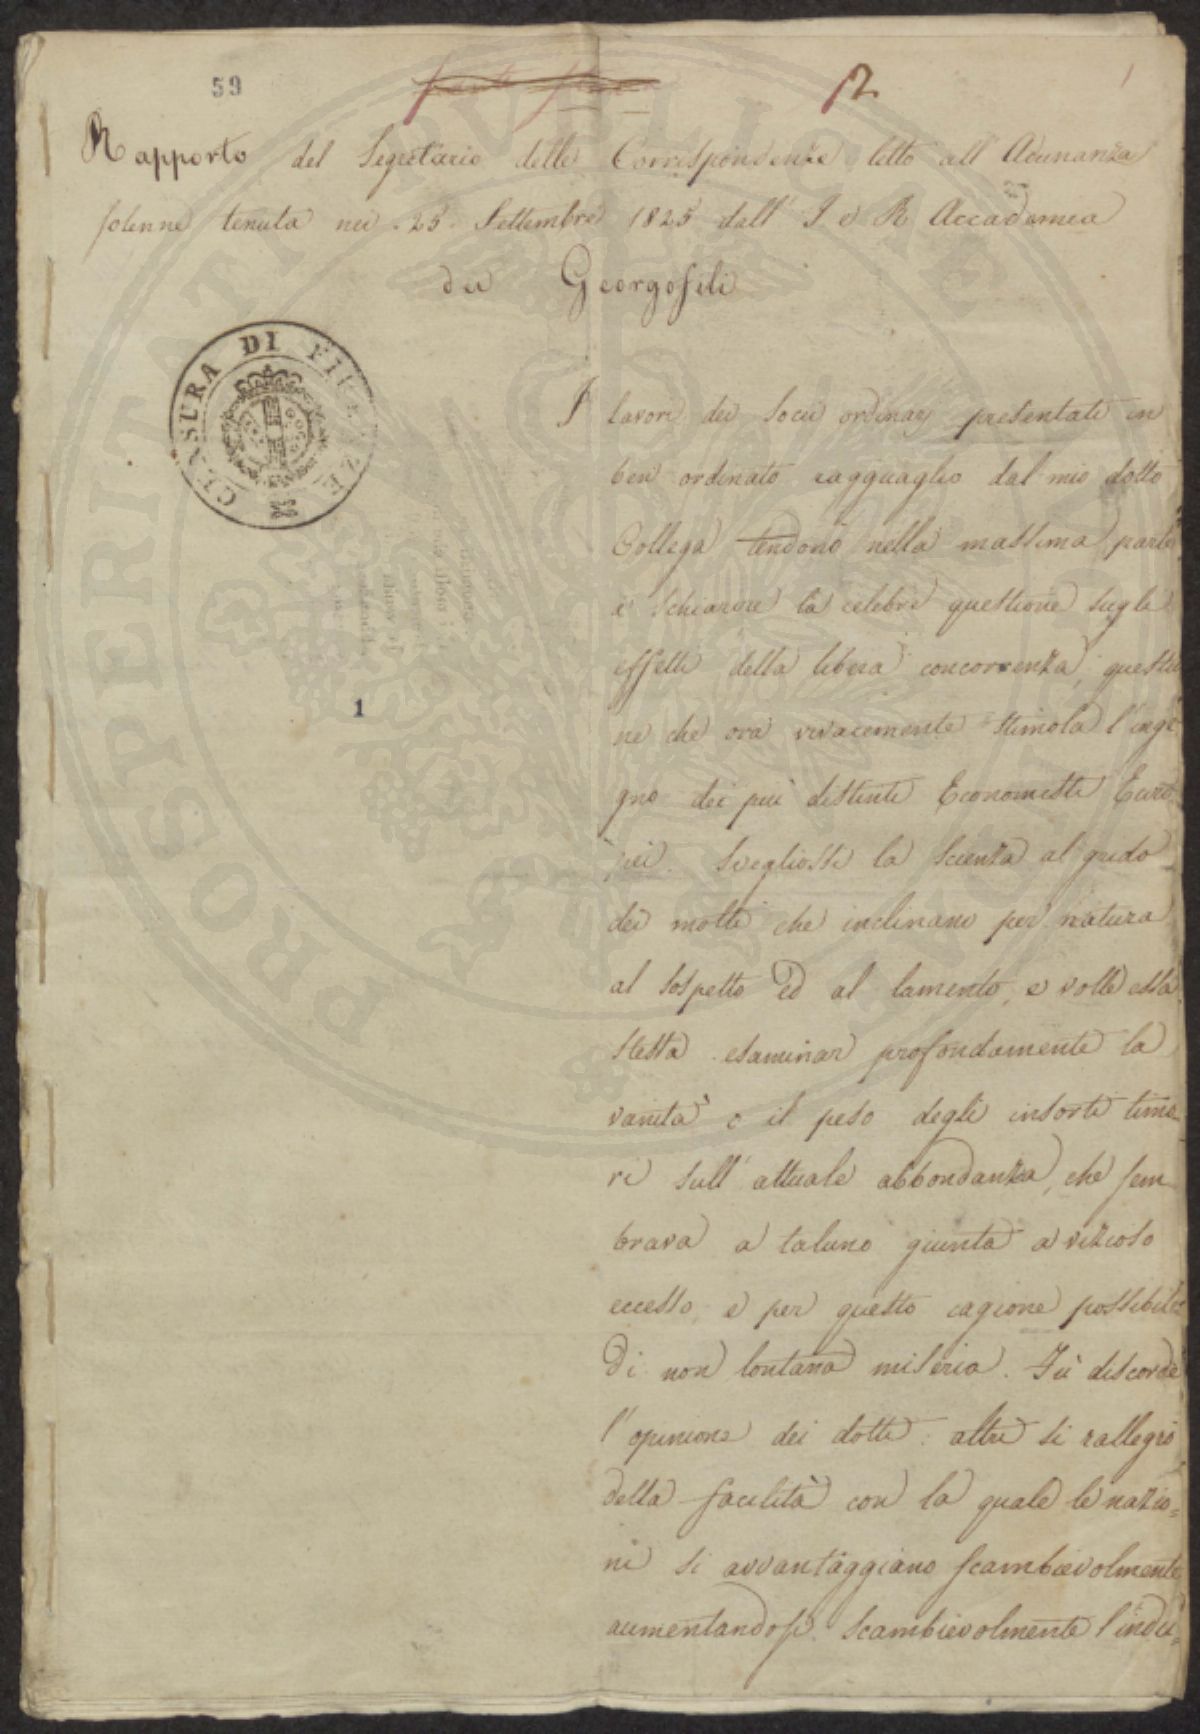 59
2
Rapporto del Segretario delle Corrispondenze letto all'Adunanza
solenne tenuta nei 25 Settembre 1825 dall'I e R Accademia
dei Georgofili
CENSURA DI FIRENZE
I lavori dei Socii ordinarj presentati in
ben ordinato ragguaglio dal mio dotto
Collega tendono nella massima parte
a schiarire la celebre questione sugli
effetti della libera concorrenza, questio
ne che ora vivacemente stimola l'inge
gno dei più distinti Economisti Euro
pei. Svegliossi la scienza al grido
dei molti che inclinano per natura
al sospetto ed al lamento, e volle essa
stessa esaminar profondamente la
vanità o il peso degli insorti timo
ri sull'attuale abbondanza, che sem
brava a taluno giunta a vizioso
eccesso, e per questo cagione possibile
di non lontana miseria. Fù discorde
l'opinione dei dotti: altri si rallegrò
della facilità con la quale le nazio=
ni si avvantaggiano scambievolmente
aumentandosi scambievolmente l'indu=
1
PROSPERITATI PVBLICAE